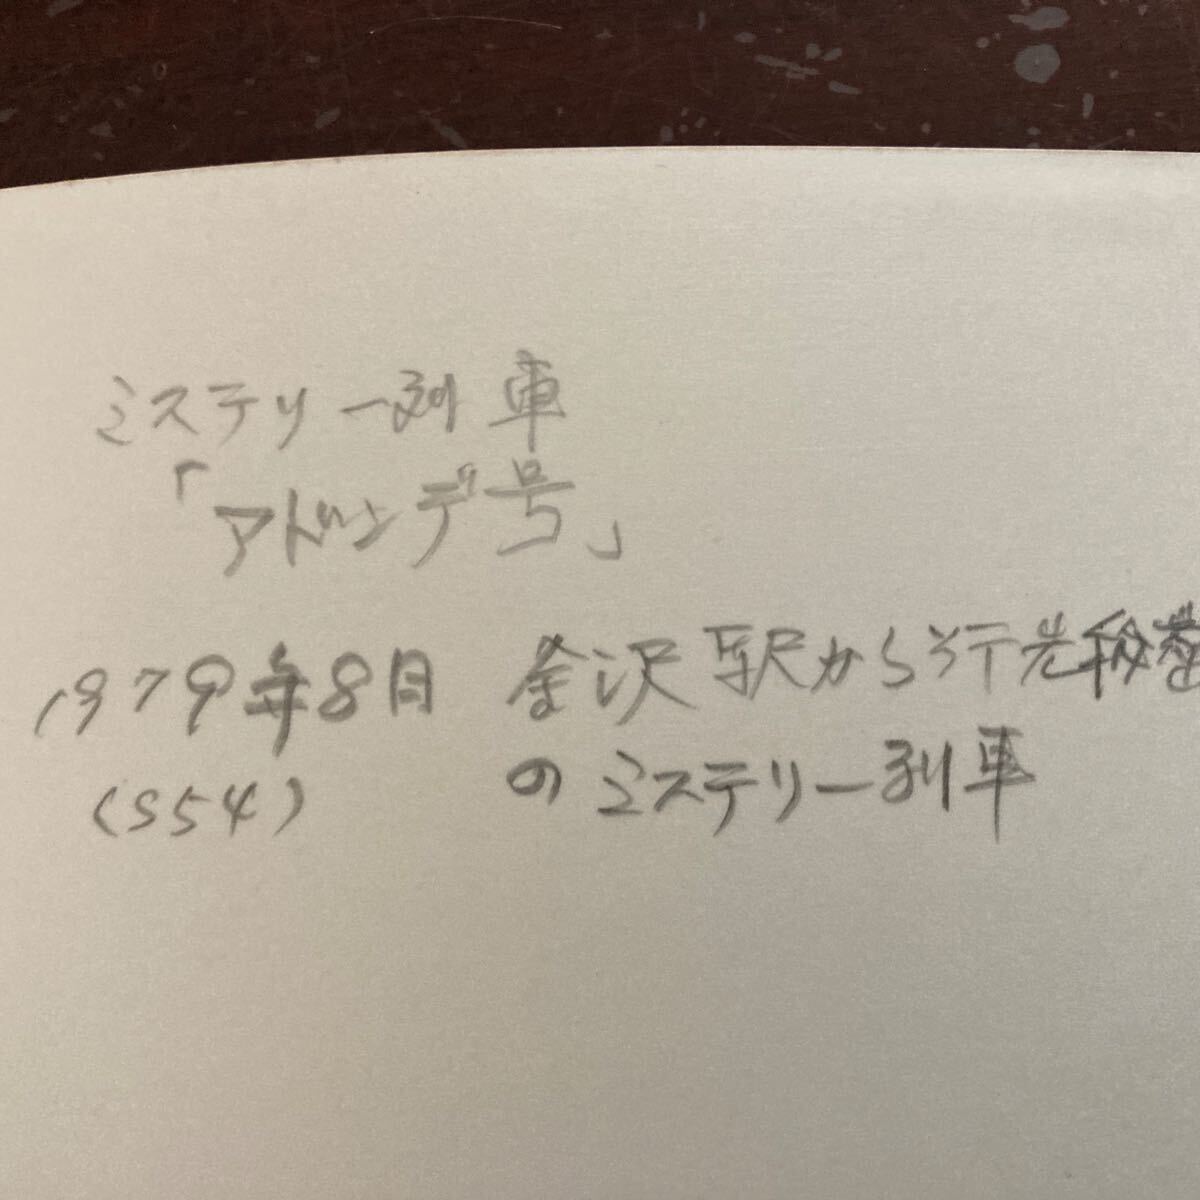 ミステリー列車
「アドンデ号」
1979年8月 金沢駅から行先秘密
(S54) のミステリー列車